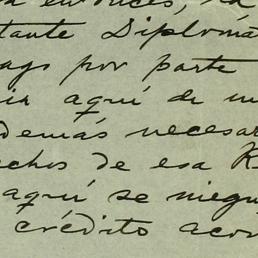 entonces, la
tante Diplomá
ago por parte
ia aquí de un
demás necesar
echos de esa R
aquí se niegu
crédito acor